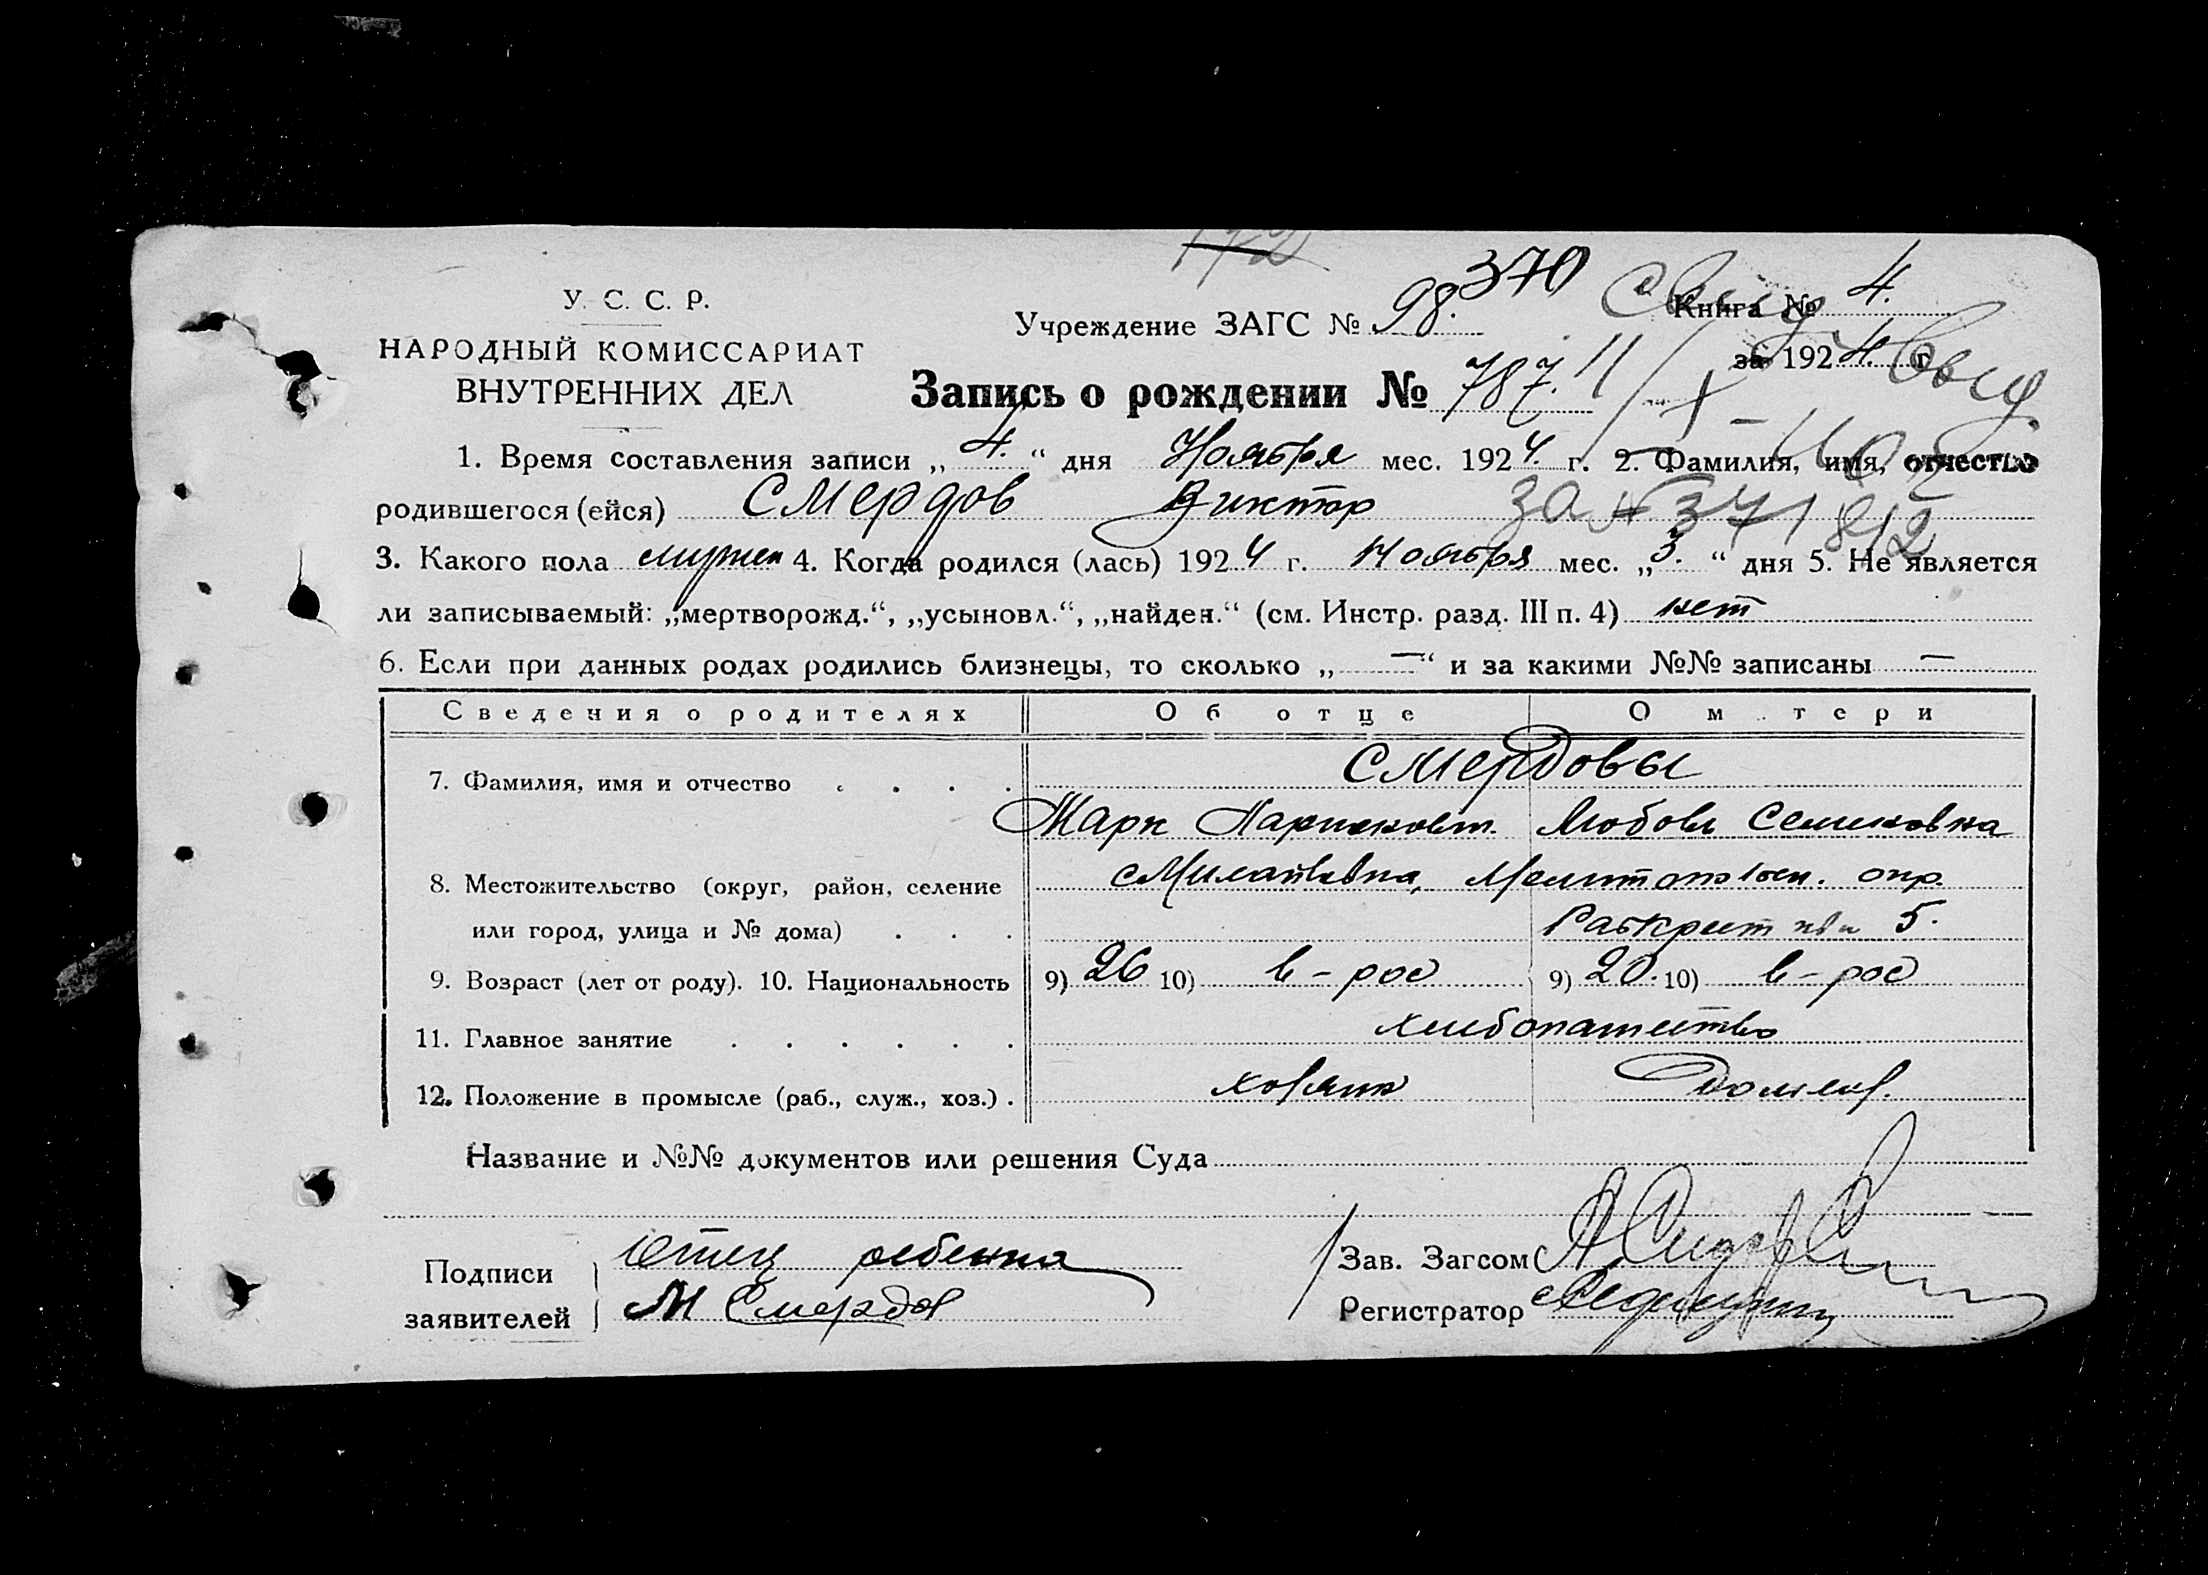 370
У. С. С. Р.
НАРОДНЫЙ КОМИССАРИАТ
ВНУТРЕННИХ ДЕЛ
Учреждение ЗАГС № 98.
Книга № 4.
за 1924 г.
Запись о рождении № 787.
1. Время составления записи „4.“ дня Ноября мес. 1924 г. 2. Фамилия, имя, отчество
родившегося (ейся) Смердов Виктор за № 371 812
3. Какого пола мужск 4. Когда родился (лась) 1924 г. Ноября мес. „3.“ дня 5. Не является
ли записываемый: „мертворожд.“, „усыновл.“, „найден.“ (см. Инстр. разд. III п. 4) нет
6. Если при данных родах родились близнецы, то сколько „—“ и за какими №№ записаны —
Сведения о родителях Об отце О м тери
7. Фамилия, имя и отчество . . . . Смердовы
Марк Любовь Семеновна
8. Местожительство (округ, район, селение Мелитопольск. окр.
или город, улица и № дома) . . . 5.
9. Возраст (лет от роду). 10. Национальность 9) 26 10) в-рос 9) 20. 10) в-рос
11. Главное занятие . . . . . . хлебопашество
12. Положение в промысле (раб., служ., хоз.) . хозяин домхоз.
Название и №№ документов или решения Суда
Подписи Отец ребенка
заявителей М Смердов
Зав. Загсом
Регистратор